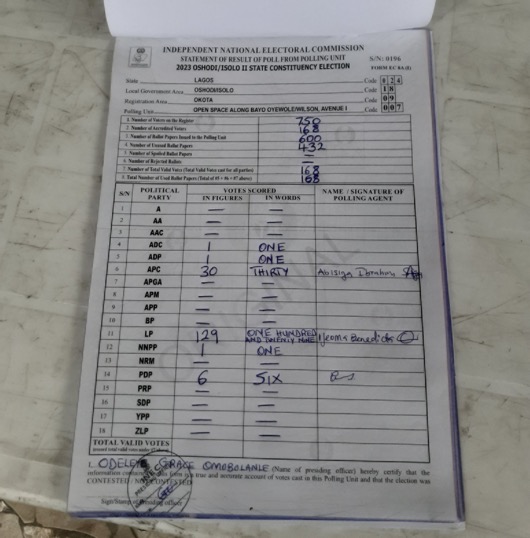 INDEPENDENT NATIONAL ELECTORAL COMMISSION
STATEMENT OF RESULT OF POLL FROM POLLING UNIT S/N: 0196
2023 OSHODI/ISOLO II STATE CONSTITUENCY ELECTION FORM EC 8A (I)
State LAGOS Code 2 4
Local Government Area OSHODI/ISOLO Code 1 8
Registration Area OKOTA Code 0 9
Polling Unit OPEN SPACE ALONG BAYO OYEWOLE/WILSON, AVENUE I Code 0 0 7
1. Number of Voters on the Register 750
2. Number of Accredited Voters 168
3. Number of Ballot Papers Issued to the Polling Unit 600
4. Number of Unused Ballot Papers 432
5. Number of Spoiled Ballot Papers —
6. Number of Rejected Ballots —
7. Number of Total Valid Votes (Total Valid Votes cast for all parties) 168
8. Total Number of Used Ballot Papers (Total of #5 + #6 + #7 above) 168
S/N POLITICAL PARTY VOTES SCORED IN FIGURES IN WORDS NAME / SIGNATURE OF POLLING AGENT
1 A — —
2 AA — —
3 AAC — —
4 ADC 1 ONE
5 ADP 1 ONE
6 APC 30 THIRTY
7 APGA — —
8 APM — —
9 APP — —
10 BP — —
11 LP 129 ONE HUNDRED AND TWENTY NINE
12 NNPP 1 ONE
13 NRM — —
14 PDP 6 SIX
15 PRP — —
16 SDP — —
17 YPP — —
18 ZLP — —
TOTAL VALID VOTES
I, ODELEYE GRACE OMOBOLANLE (Name of presiding officer) hereby certify that the
information contained in this form is a true and accurate account of votes cast in this Polling Unit and that the election was
CONTESTED / NOT CONTESTED
Sign/Stamp of Presiding officer